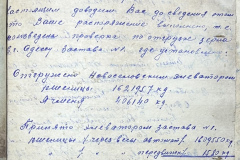 настоящим доводим Вас до сведения что
Ваше распоряжение выполнен
проверка по отгрузке зерна
в г. Одессу Застава № 1. где установлено:
Отгружено Новосельским элеватором
пшеницы 1621957 кг
Ячменя 406140 кг
Принято элеватором Застава № 1.
пшеницы (через весы автомат) 1609550 кг